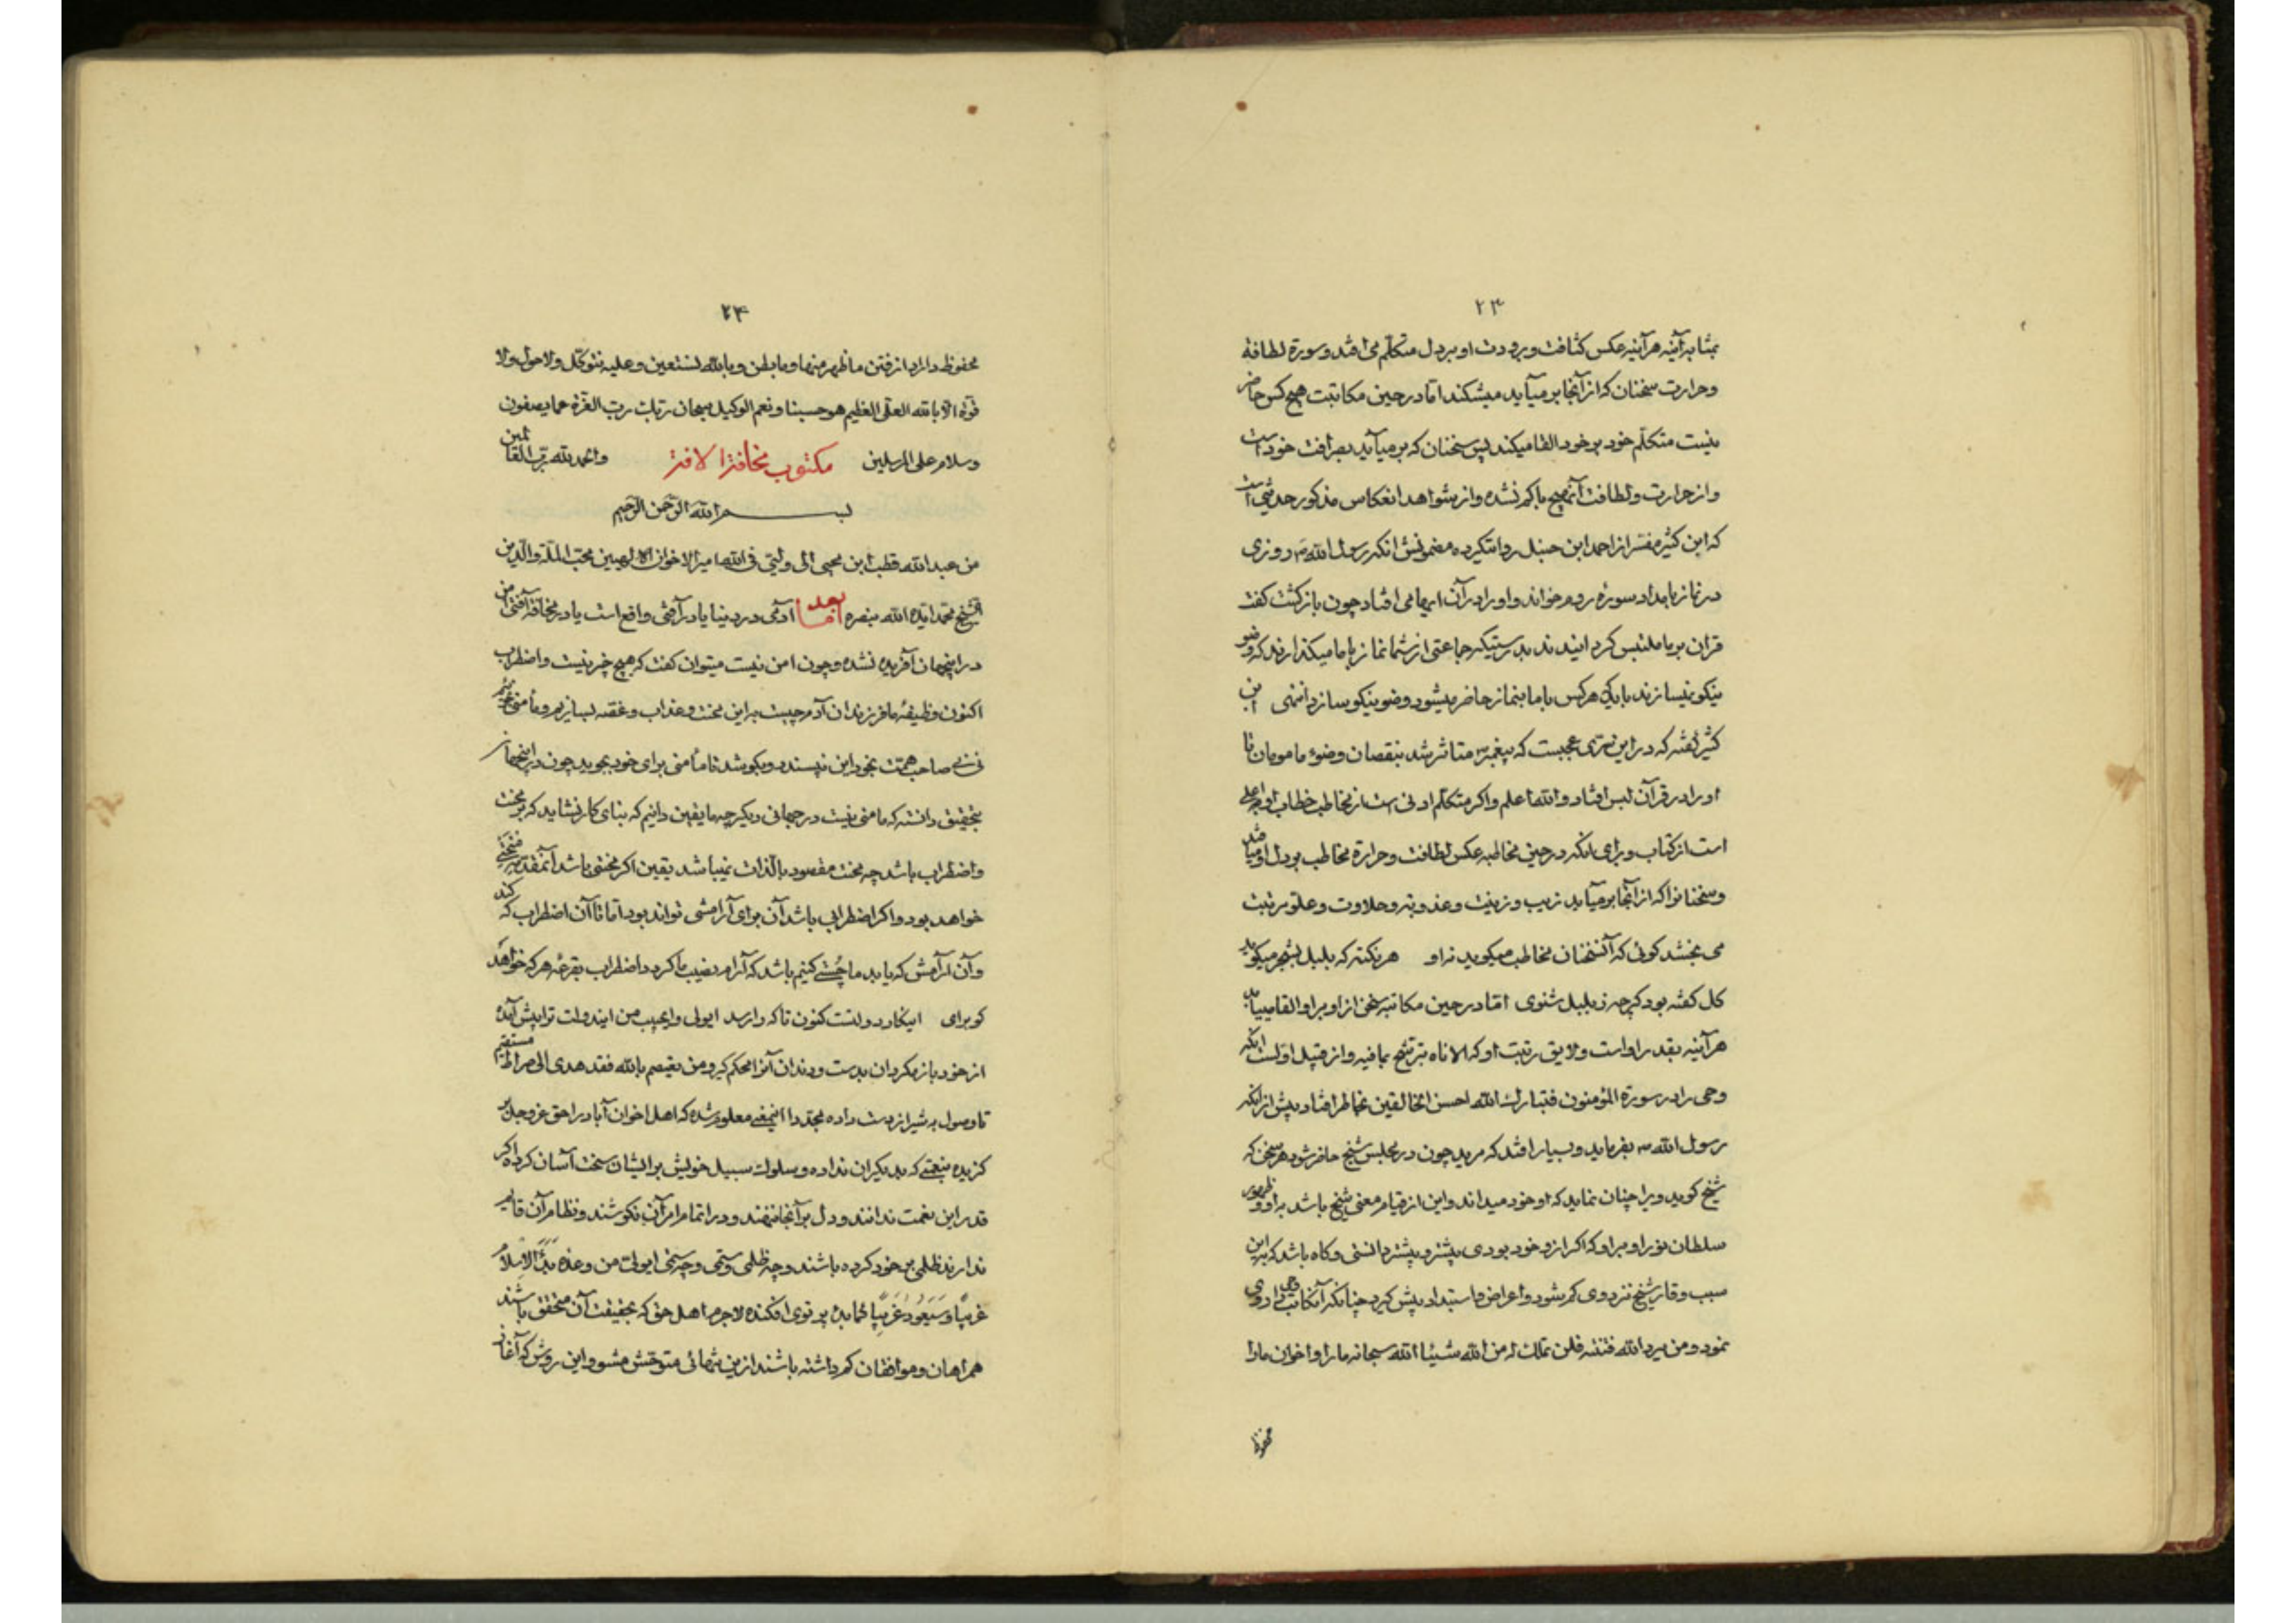 ۲۳
بمثابه آئینه هر آینه عکس کثافت و برودت او بر دل متکلم می افتد و سورة لطافة
و حرارت سخنان که از آنجا بر میآید میشکند اما در حین مکاتبت هیچ کس حاضر
نیست متکلم خود بر خود القا میکند پس سخنان که بر میآید بصرافت خود است
و از حرارت و لطافت آن هیچ باکم نشده و از شواهد انعکاس مذکور حدیثی است
که ابن کثیر مفسر از احمد ابن حنبل روایتکرده مضمونش انکه رسول الله ص روزی
در نماز بامداد سورة روم خواند و او را در آن ایهامی افتاد چون باز کشت کفت
قران بر ما ملتبس کردانیدند بدرستیکه جماعتی از شما نماز با ما میکذارند که وضو
نیکو نمیسازند باید که هر کس با ما بنماز حاضر میشود وضو نیکو سازد انتهی ابن
کثیر کفته که در این سری عجیبست که پیغمبر ص متاثر شد بنقصان وضوء مامومان تا
او را در قرآن لبس افتاد و الله اعلم و اکر متکلم ادنی است از مخاطب خطاب او را اعلی
است از کتاب و برای انکه در حین مخاطبه عکس لطافت و حرارة مخاطب بر دل او میافتد
و سخنانرا که از آنجا بر میآید زیب و زینت و عذوبة و حلاوت و علو مرتبت
می بخشد کوئی که آنسخنان مخاطب میکوید نه او هر نکته که بلبل بشجر میکوید
کل کفته بود کرچه ز بلبل شنوی اما در حین مکاتبه سخن از او بر او القا مییابد
هر آینه بقدر او است و لایق رتبت او که الاناء یترشح بما فیه و از قبیل اولست انکه
وحی را در سورة المؤمنون فتبارک الله احسن الخالقین بخاطر افتاد پیش از انکه
رسول الله ص بفرماید و بسیار افتد که مرید چون در مجلس شیخ حاضر شود هر سخن که
شیخ کوید ویرا چنان نماید که او خود میداند و این از قیام معنی شیخ باشد به او و ظهور
سلطان نور او بر او که اکر از خود بودی پیشتر و بیشتر دانستی و کاه باشد که به این
سبب وقار شیخ نزد وی کم شود و اعراض و استبداد پیش کیرد چنانکه آنکاتب وحی را روی
نمود و من یرد الله فتنته فلن تملک له من الله شیئا الله سبحانه ما را و اخوان ما را
محفوظ
۲۴
محفوظ دارد از فتن ما ظهر منها و ما بطن و بالله نستعین و علیه نتوکل و لا حول و لا
قوة الا بالله العلی العظیم هو حسبنا و نعم الوکیل سبحان ربک رب العزة عما یصفون
و سلام علی المرسلین مکتوب مخافة الافتر والحمد لله رب العالمین
بسم الله الرحمن الرحیم
من عبد الله قطب ابن محیی الی ولیتی فی الله امیر الاخوان الالهیین محب الملة والدین
الشیخ محمد ایده الله بنصره اما بعد آدمی در دنیا یا در آفتی واقع است یا در مخافة آفتی امن
در اینجهان آفریده نشده و چون امن نیست میتوان کفت که هیچ خبر نیست و اضطراب
اکنون وظیفه ما فرزندان آدم چیست به این محنت و عذاب و غصه بسازیم و مأمنی نجوئیم
نی نی صاحب همت بخود این نپسندد و بکوشد تا مأمنی برای خود بجوید چون در اینجهان
بتحقیق دانسته که مامنی نیست در جهانی دیکر چه ما یقین دانیم که بنای کار نشاید که بر محنت
و اضطراب باشد چه محنت مقصود بالذات نمیباشد یقین اکر محنتی باشد آنمقدمه منحتی
خواهد بود و اکر اضطرابی باشد آن برای آرامشی تواند بود اما تا آن اضطراب که کند
و آن آرامش که یابد ما چستی کنیم باشد که آرام نصیب ما کردد و اضطراب بقرعه هر که خواهد
کو برای اینکار دولتست کنون تا که را رسد ای ولی و ایحبیب من ایندولت ترا پیش آمده
از خود باز مکردان بدست و دندان آنرا محکم کیر و من یعتصم بالله فقد هدی الی صراط مستقیم
تا وصول به شیراز دست داده مجددا اینمعنی معلوم شده که اهل اخوان آباد را حق عز و جل بر
کزیده بنعمتی که بدیکران نداده و سلوک سبیل خویش بر ایشان سخت آسان کرده اکر
قدر این نعمت ندانند و دل بر آنجا ننهند و در اتمام امر آن نکوشند و نظام آن قایم
ندارند ظلمی بر خود کرده باشند و چه ظلمی و ستمی و چه ستمی ای ولی من وعده بدأ الاسلام
غریبا و سیعود غریبا کما بدء پرتوی افکنده لاجرم اهل حق که بحقیقت آن متحقق باشند
همراهان و موافقان کم داشته باشند از این تنهائی متوحش مشو و این روش که آغاز